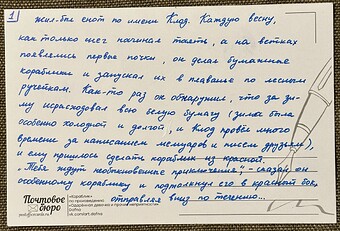 1
Жил-был енот по имени Клод. Каждую весну,
как только снег начинал таять, а на ветках
появлялись первые почки, он делал бумажные
кораблики и запускал их в плаванье по лесным
ручейкам. Как-то раз он обнаружил, что за зи-
му израсходовал всю белую бумагу (зима была
особенно холодной и долгой, и Клод провёл много
времени за написанием мемуаров и писем друзьям),
и ему пришлось сделать кораблик из красной.
„Тебя ждут необыкновенные приключения" - сказал он
особенному кораблику и подтолкнул его в красный бок,
отправляя вниз по течению...
Почтовое
бюро
«Кораблик»
по произведению